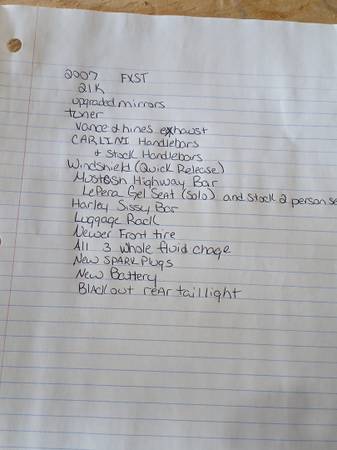 2007 FXST
21K
upgraded mirrors
tuner
Vance & hines exhaust
CARLINI Handlebars
& Stock Handlebars
Windshield (Quick Release)
Mustosh Highway Bar
LePera Gel Seat (Solo) and Stock 2 person se
Harley Sissy Bar
Luggage Rack
Newer Front tire
All 3 whole fluid chage
New SPARK Plugs
New Battery
Blackout rear taillight